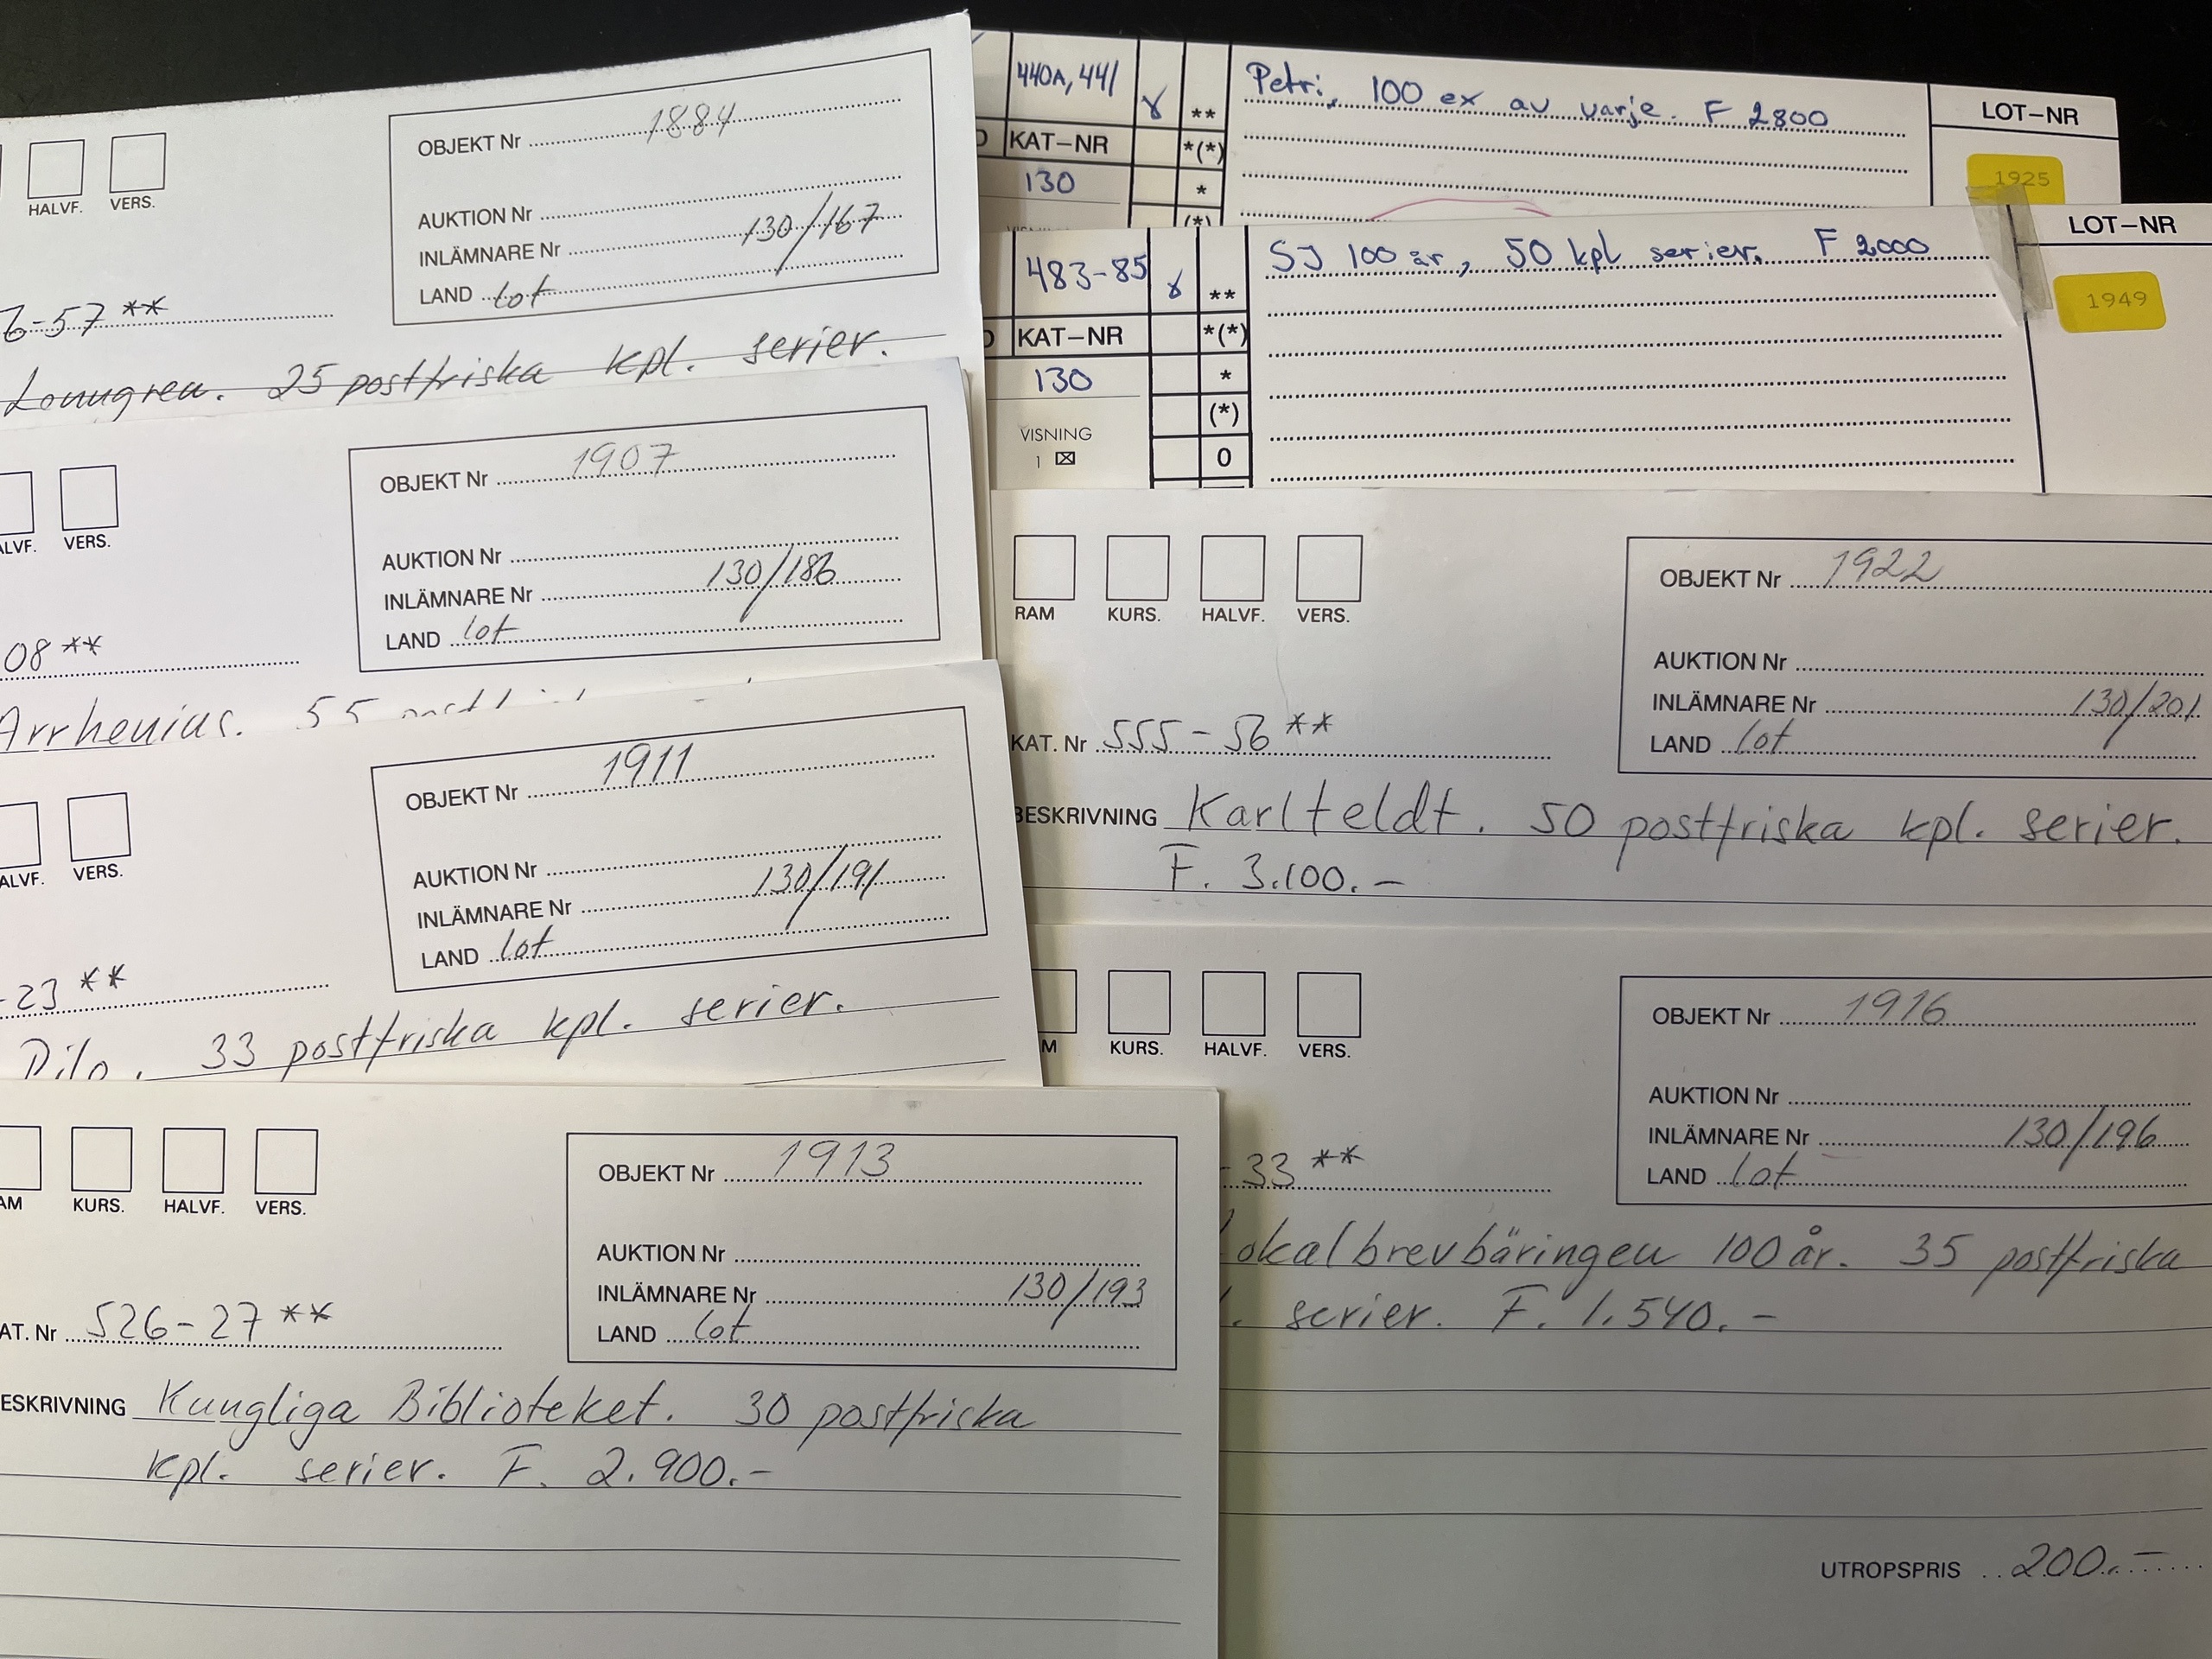 HALVF. VERS.
OBJEKT Nr 1884
AUKTION Nr
INLÄMNARE Nr 130/167
LAND lot
6-57 **
Lönngren. 25 postfriska kpl. serier.
ALVF. VERS.
OBJEKT Nr 1907
AUKTION Nr
INLÄMNARE Nr 130/186
LAND lot
08 **
Arrhenius. 55
ALVF. VERS.
OBJEKT Nr 1911
AUKTION Nr
INLÄMNARE Nr 130/191
LAND lot
-23 **
Dilo. 33 postfriska kpl. serier.
AM KURS. HALVF. VERS.
OBJEKT Nr 1913
AUKTION Nr
INLÄMNARE Nr 130/193
LAND lot
AT. Nr 526-27 **
ESKRIVNING Kungliga Biblioteket. 30 postfriska
kpl. serier. F. 2.900.-
440A, 441 ** Petri, 100 ex av varje. F 2800
LOT-NR
KAT-NR *(*)
1925
130 *
(*)
483-85 ** SJ 100 år, 50 kpl serier. F 2000
LOT-NR
1949
KAT-NR *(*)
130 *
(*)
VISNING
1 0
RAM KURS. HALVF. VERS.
OBJEKT Nr 1922
AUKTION Nr
INLÄMNARE Nr 130/201
LAND lot
KAT. Nr 555-56 **
BESKRIVNING Karlfeldt. 50 postfriska kpl. serier.
F. 3.100.-
M KURS. HALVF. VERS.
OBJEKT Nr 1916
AUKTION Nr
INLÄMNARE Nr 130/196
LAND lot
-33 **
okalbrevbäringen 100 år. 35 postfriska
l. serier. F. 1.540.-
UTROPSPRIS 200.-